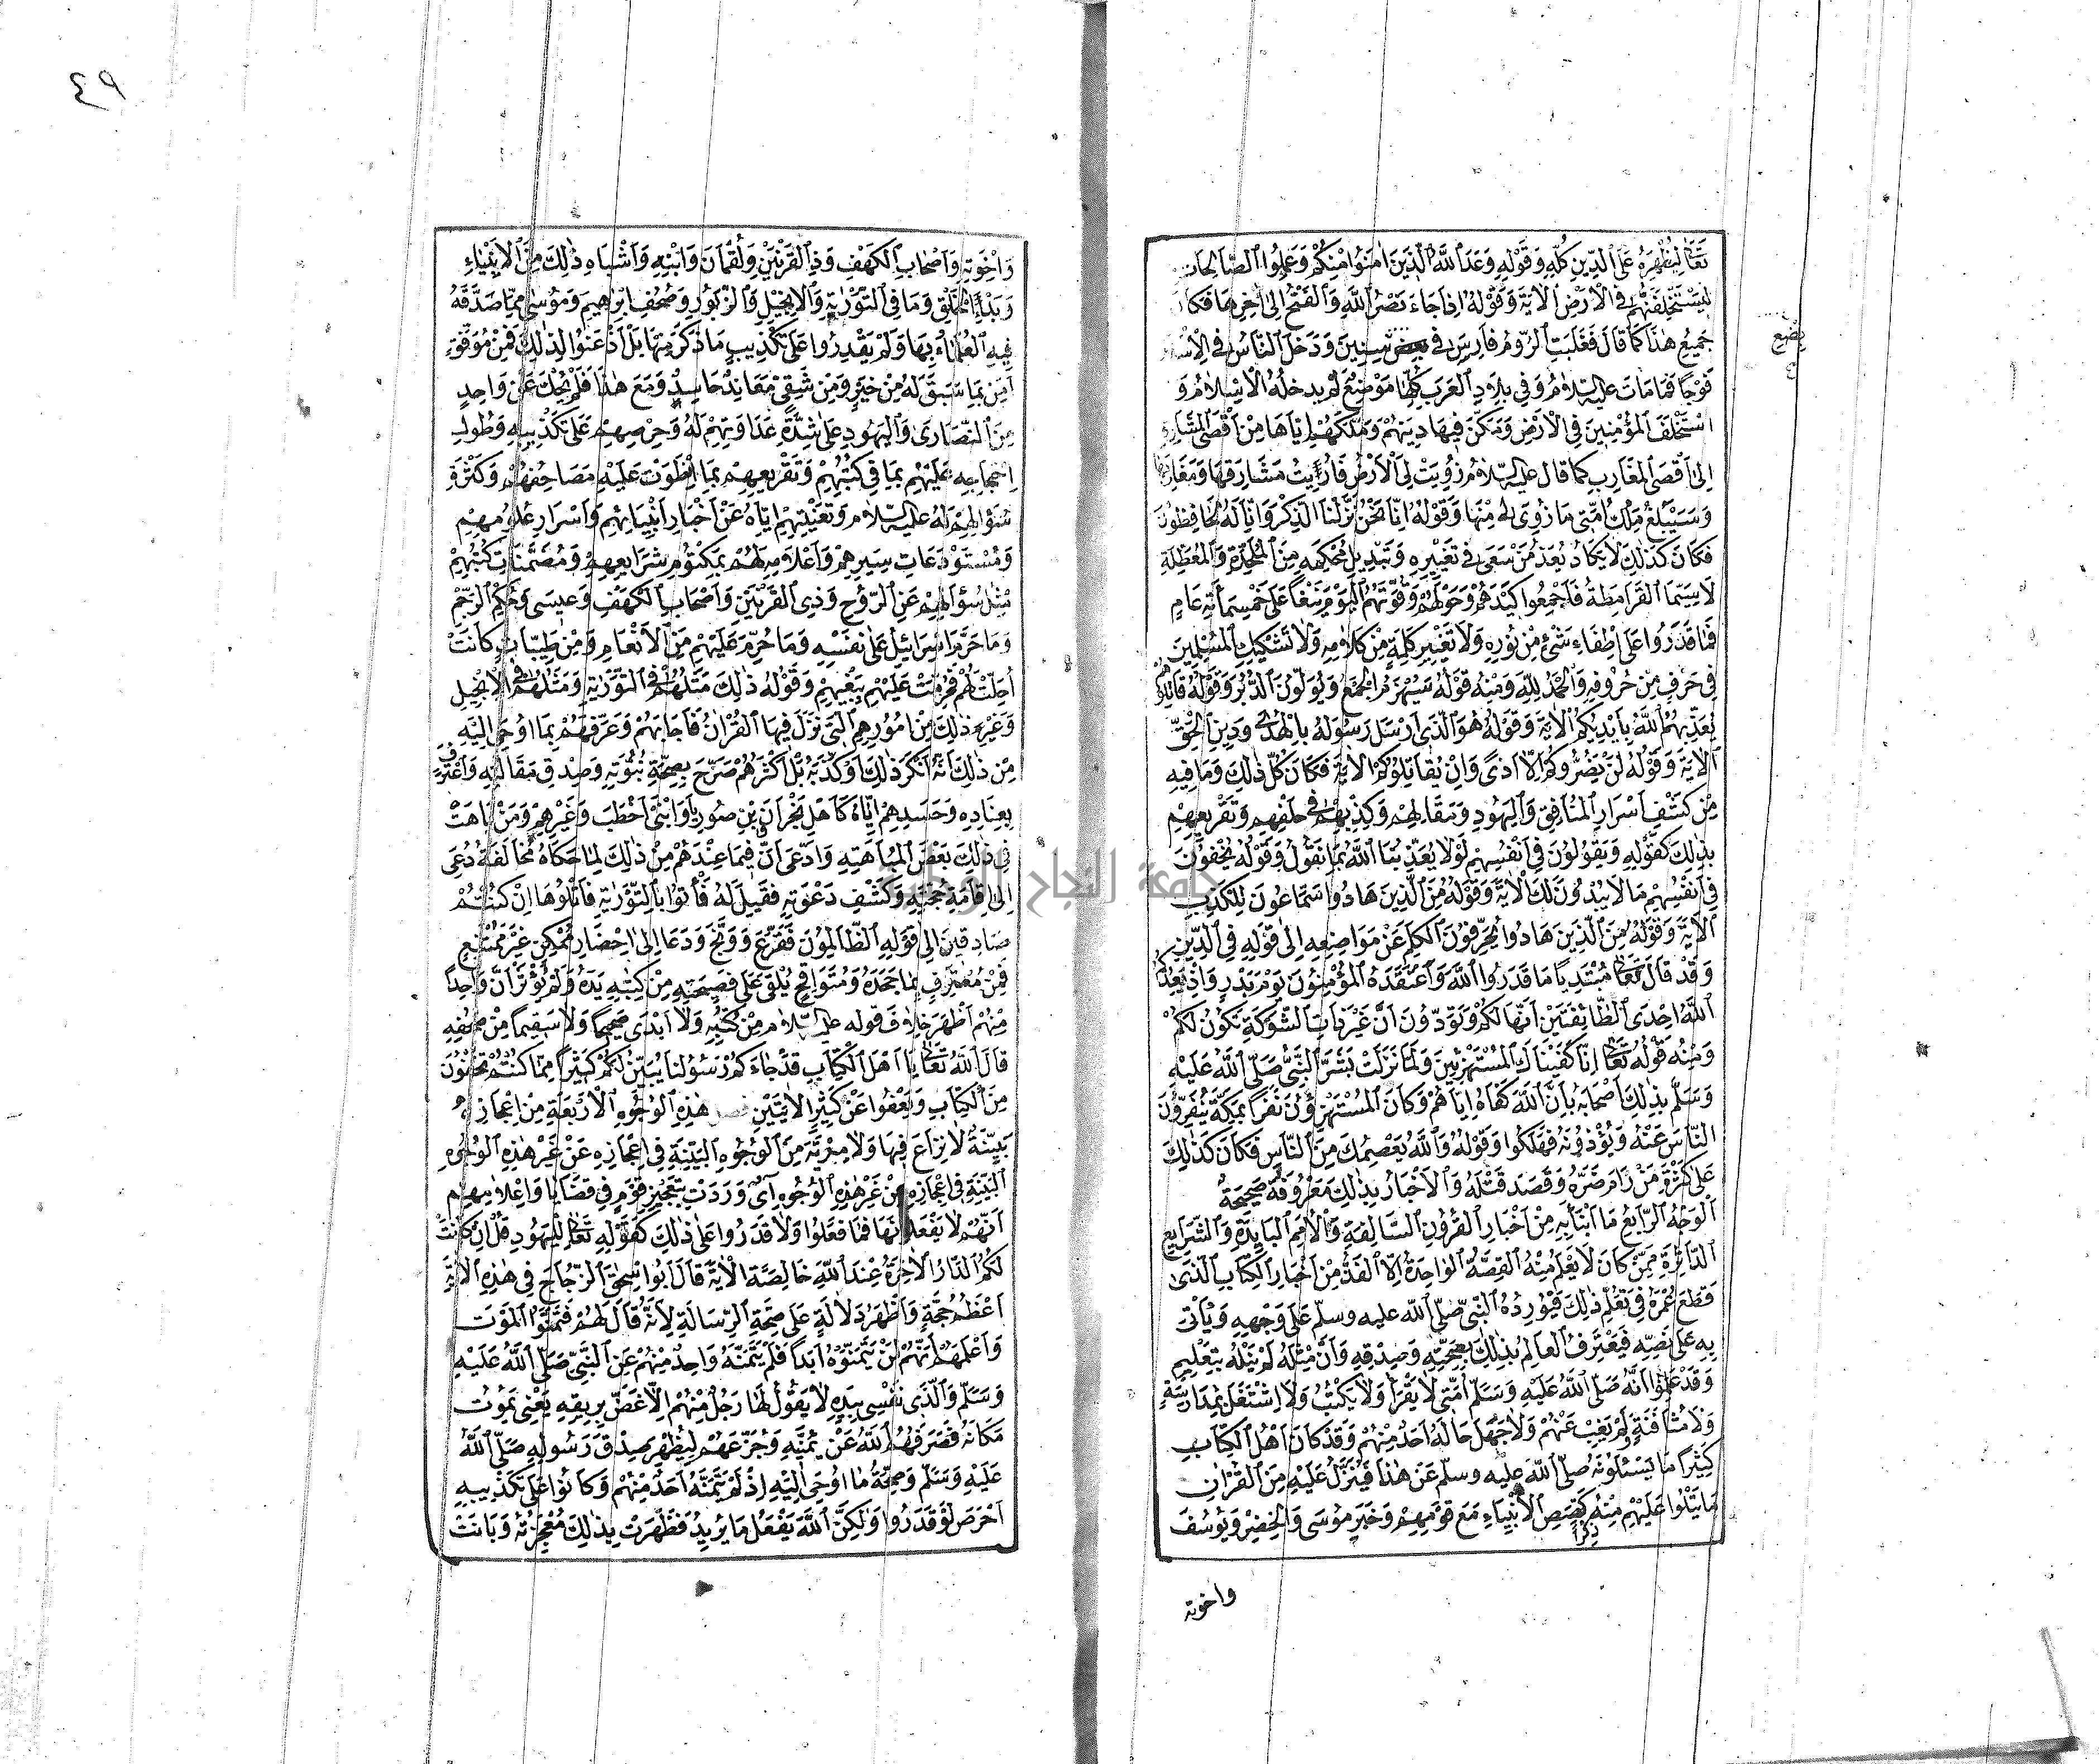 تعالى ليظهره على الدين كله وقوله وعد الله الذين امنوا منكم وعملوا الصالحات
ليستخلفنهم في الارض الاية وقوله اذا جاء نصر الله والفتح الى اخرها فكان
جميع هذا كما قال فغلبت الروم فارس في بعض سنين ودخل الناس في الاسلام
بضع
فوجا فما مات عليه السلام وفي بلاد العرب كلها موضع لم يدخله الاسلام و
استخلف المؤمنين في الارض ومكن فيها دينهم وملكهم اياها من اقصى المشارق
الى اقصى المغارب كما قال عليه السلام زويت لي الارض فاريت مشارقها ومغاربها
وسيبلغ ملك امتي ما زوى لي منها وقوله انا نحن نزلنا الذكر وانا له لحافظون
فكان كذلك لا يكاد يعد من سعى في تغييره وتبديل محكمه من الملحدة والمعطلة
لا سيما القرامطة فاجمعوا كيدهم وحولهم وقوتهم اليوم نيفا على خمسمائة عام
فما قدروا على اطفاء شئ من نوره ولا تغيير كلمة من كلامه ولا تشكيك المسلمين
في حرف من حروفه والحمد لله ومنه قوله سيهزم الجمع ويولون الدبر وقوله قاتلوهم
يعذبهم الله بايديكم الاية وقوله هو الذي ارسل رسوله بالهدى ودين الحق
الاية وقوله لن يضروكم الا اذى وان يقاتلوكم الاية فكان كل ذلك وما فيه
من كشف اسرار المنافقين واليهود ومقالهم وكذبهم في حلفهم وتقريعهم
بذلك كقوله ويقولون في انفسهم لولا يعذبنا الله بما نقول وقوله يخفون
في انفسهم ما لا يبدون لك الاية وقوله من الذين هادوا سماعون للكذب
الاية وقوله من الذين هادوا يحرفون الكلم عن مواضعه الى قوله في الدين
وقد قال تعالى مبتديا ما قدروا الله واعتقده المؤمنون يوم بدر واذ يعدكم
الله احدى الطائفتين انها لكم وتودون ان غير ذات الشوكة تكون لكم
ومنه قوله تعالى انا كفيناك المستهزئين ولما نزلت بشر النبي صلى الله عليه
وسلم بذلك اصحابه بان الله كفاه اياهم وكان المستهزؤن نفرا بمكة ينفرون
الناس عنه ويؤذونه فهلكوا وقوله والله يعصمك من الناس فكان كذلك
على كثرة من رام ضره وقصد قتله والاخبار بذلك معروفة صحيحة
الوجه الرابع ما انبأ به من اخبار القرون السالفة والامم البايدة والشرايع
الداثرة مما كان لا يعلم منه القصة الواحدة الا الفذ من اخبار الكتاب الذي
قطع عمره في تعلم ذلك فيورده النبي صلى الله عليه وسلم على وجهه وياتي
به على نصه فيعترف العالم بذلك بصحته وصدقه وان مثله لم ينله بتعليم
وقد علموا انه صلى الله عليه وسلم امي لا يقرأ ولا يكتب ولا اشتغل بمدارسة
ولا مثافنة ولم يغب عنهم ولا جهل حاله احد منهم وقد كان اهل الكتاب
كثيرا ما يسئلونه صلى الله عليه وسلم عن هذا فينزل عليه من القران
ما يتلوا عليهم منه كقصص الانبياء مع قومهم وخبر موسى والخضر ويوسف
ذكرا
واخوته
٤٩
واخوته واصحاب الكهف وذي القرنين ولقمان وابنه واشباه ذلك من الانبياء
وبدء الخلق وما في التورية والانجيل والزبور وصحف ابراهيم وموسى مما صدقه
فيه العلماء بها ولم يقدروا على تكذيب ما ذكر منها بل اذعنوا لذلك فمن موفق
امن بما سبق له من خير ومن شقي معاند حاسد ومع هذا فلم يحك عن واحد
من النصارى واليهود على شدة عداوتهم له وحرصهم على تكذيبه وطول
احتجاجه عليهم بما في كتبهم وتقريعهم بما انطوت عليه مصاحفهم وكثرة
سؤالهم له عليه السلام وتعنيتهم اياه عن اخبار انبيائهم واسرار علومهم
ومستودعات سيرهم واعلامه لهم بمكتوم شرايعهم ومضمنات كتبهم
مثل سؤالهم عن الروح وذي القرنين واصحاب الكهف وعيسى وحكم الرجم
وما حرم اسرائيل على نفسه وما حرم عليهم من الانعام ومن طيبات كانت
احلت لهم فحرمت عليهم ببغيهم وقوله ذلك مثلهم في التورية ومثلهم في الانجيل
وغير ذلك من امورهم التي نزل فيها القران فاجابهم وعرفهم بما اوحى اليه
من ذلك انه انكر ذلك او كذبه بل اكثرهم صرح بصحة نبوته وصدق مقالته واعترف
بعناده وحسدهم اياه كاهل نجران وابن صوريا وابني اخطب وغيرهم ومن باهت
في ذلك بعض المباهتة وادعى ان فيما عندهم من ذلك لما حكاه مخالفة دعى
الى اقامة حجته وكشف دعوته فقيل له فأتوا بالتورية فاتلوها ان كنتم
صادقين الى قوله الظالمون فقرع ووبخ ودعا الى احضار ممكن غير ممتنع
فمن معترف بما جحده ومتواقح يلقى على فضيحته من كتبه يده ولم يؤثر ان واحدا
منهم اظهر خلاف قوله عليه السلام من كتبه ولا ابدى صحيحا ولا سقيما من صحفه
قال الله تعالى يا اهل الكتاب قد جاءكم رسولنا يبين لكم كثيرا مما كنتم تخفون
من الكتاب ويعفوا عن كثير الايتين فصل هذه الوجوه الاربعة من اعجازه
بينة لا نزاع فيها ولا مرية من الوجوه البينة في اعجازه عن غير هذه الوجوه
البينة في اعجازه من غير هذه الوجوه آي وردت بتعجيز قوم في قضايا واعلامهم
انهم لا يفعلونها فما فعلوا ولا قدروا على ذلك كقوله تعالى لليهود قل ان كانت
لكم الدار الاخرة عند الله خالصة الاية قال ابو اسحق الزجاج في هذه الاية
اعظم حجة واظهر دلالة على صحة الرسالة لانه قال لهم فتمنوا الموت
واعلمهم انهم لن يتمنوه ابدا فلم يتمنه واحد منهم عن النبي صلى الله عليه
وسلم والذي نفسي بيده لا يقولها رجل منهم الا غص بريقه يعنى يموت
مكانه فصرفهم الله عن تمنيه وجزعهم ليظهر صدق رسوله صلى الله
عليه وسلم وصحة ما اوحى اليه اذ لم يتمنه احد منهم وكانوا على تكذيبه
احرص لو قدروا ولكن الله يفعل ما يريد فظهرت بذلك معجزته وبانت
جامعة النجاح الوطنية